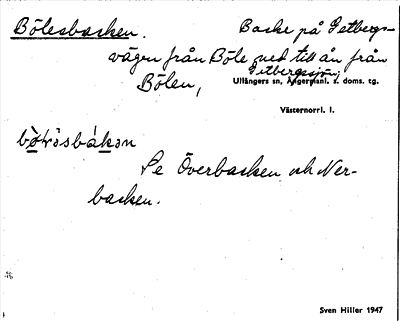 Bölesbacken. Backe på Getbergs-
vägen från Böle ned till ån från
Getbergssjön,
Bölen,
Ullångers sn, Ångermanl. s. doms. tg.
Västernorrl. l.
Se Överbacken och Ner-
backen.
Sven Hiller 1947